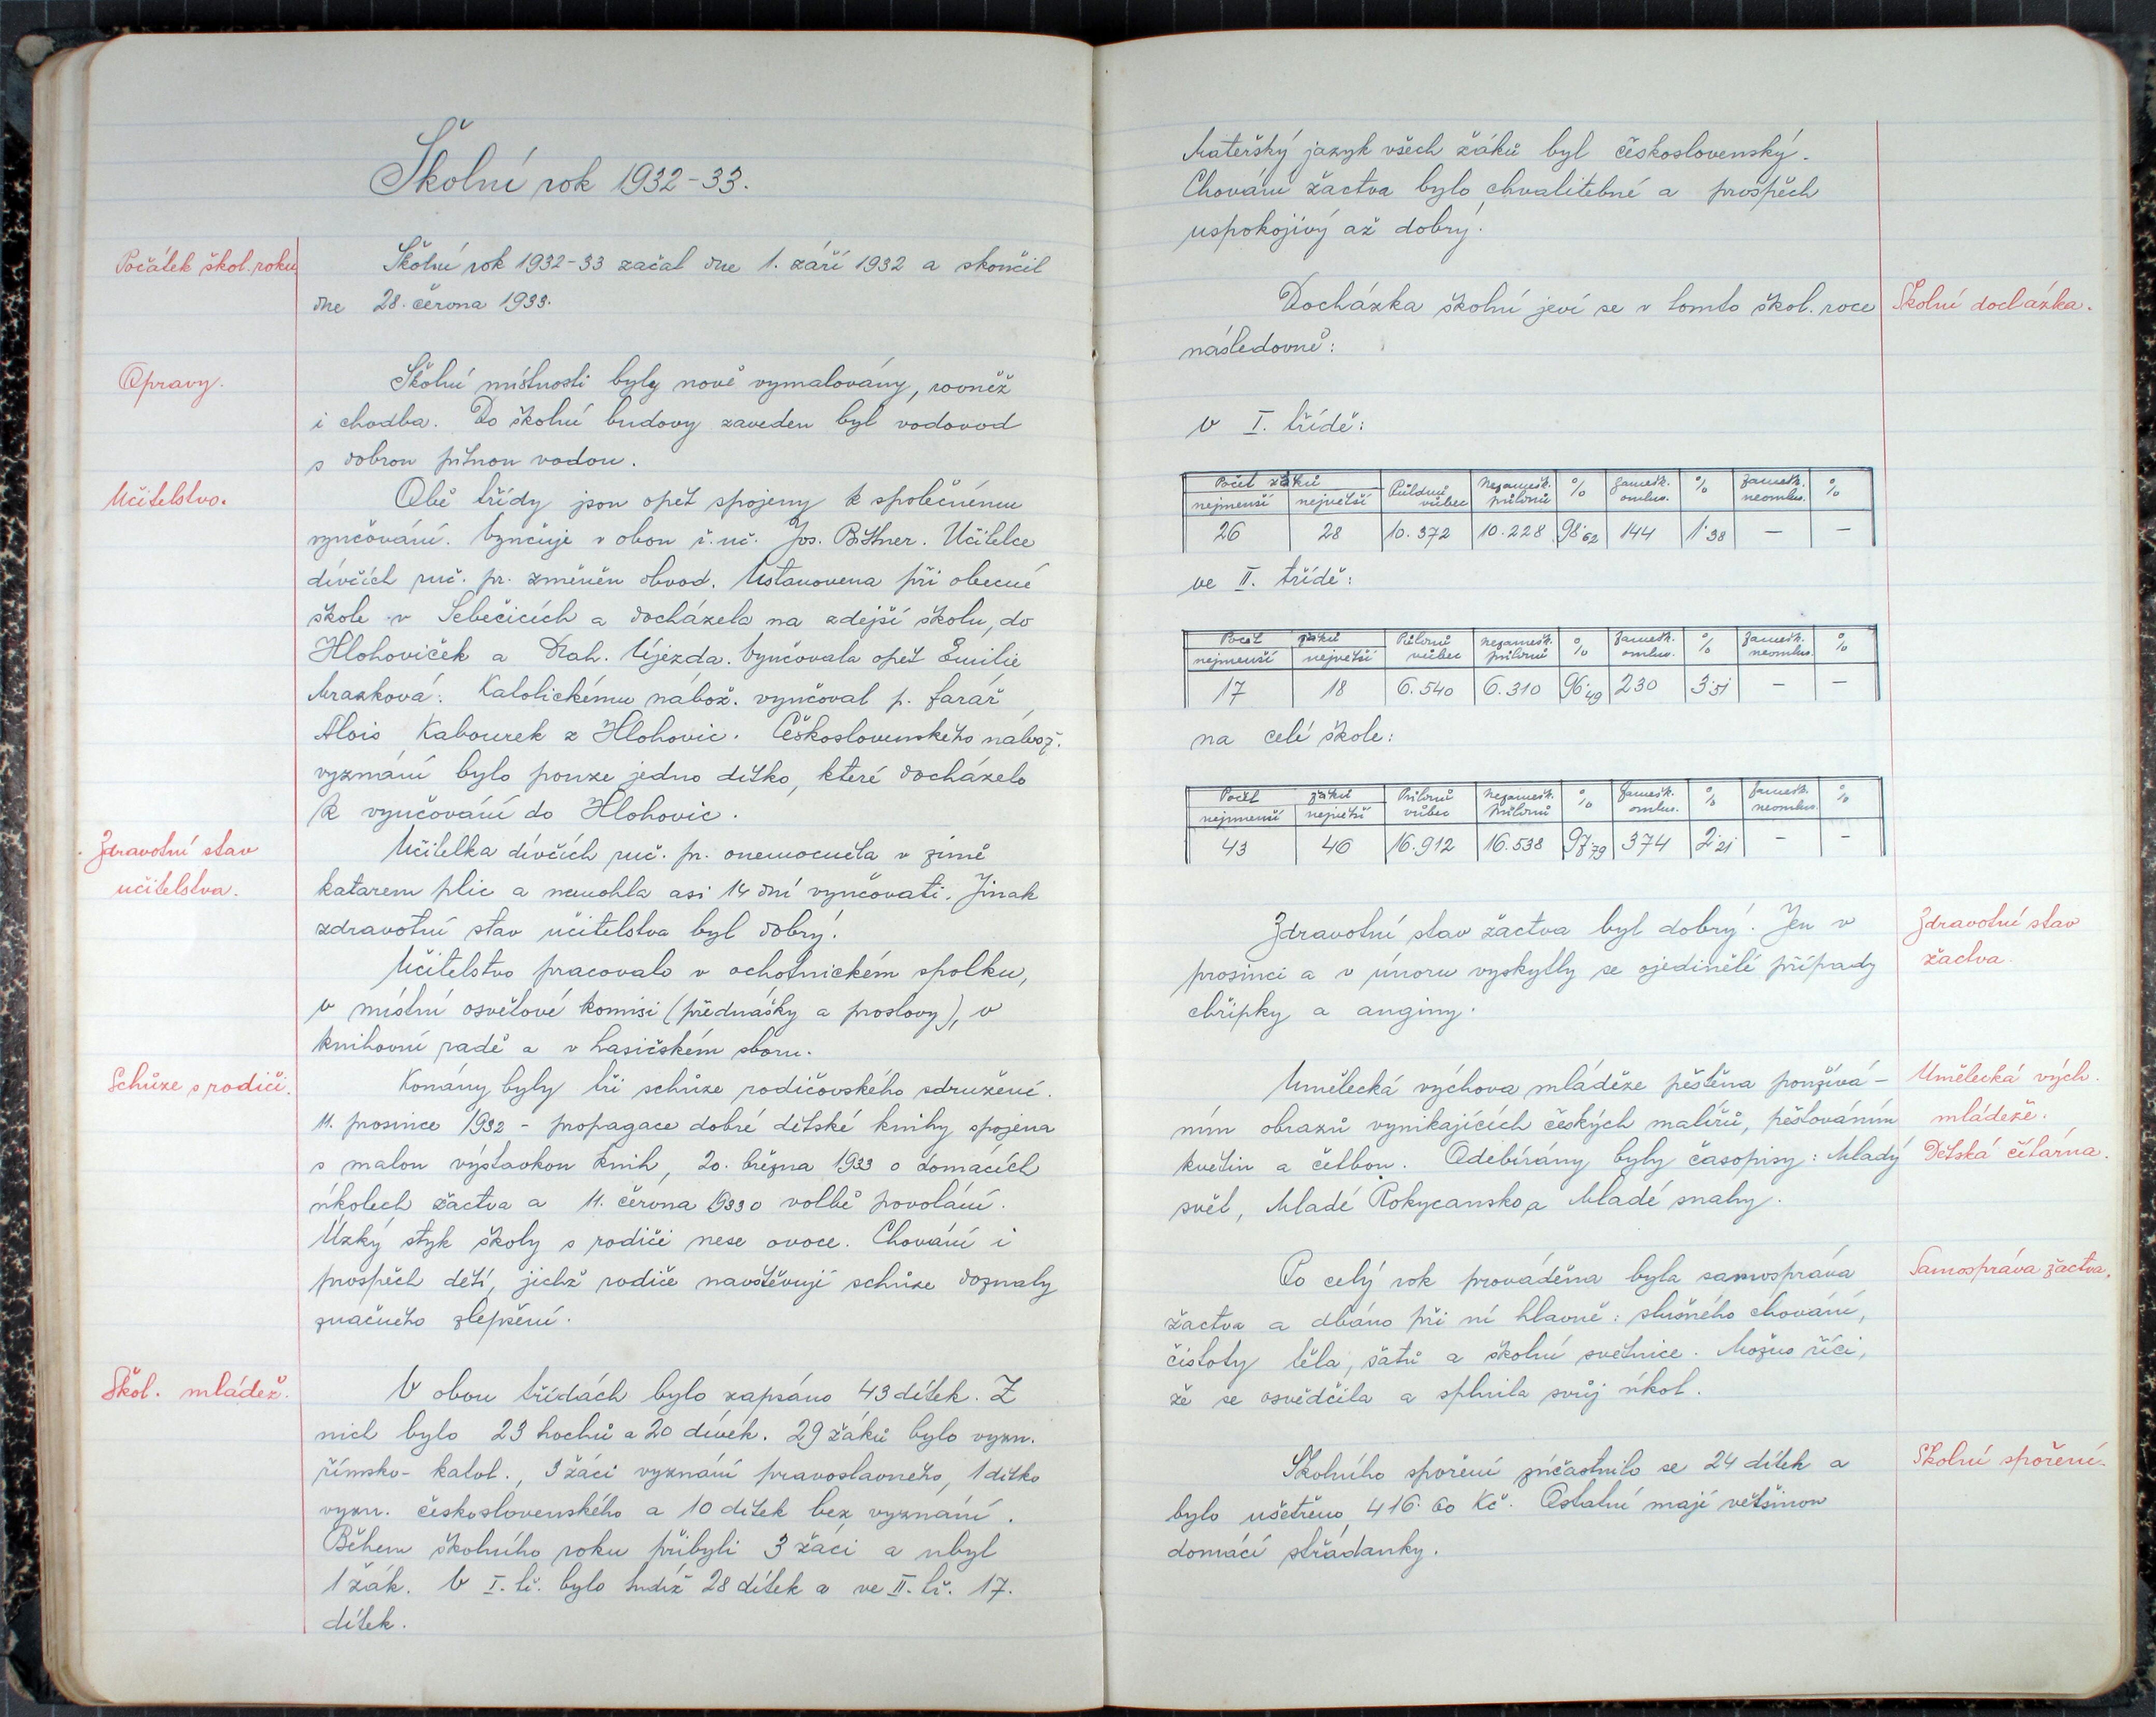 Školní rok 1932-33.
Počátek škol. roku
Školní rok 1932-33 začal dne 1. září 1932 a skončil
dne 28. června 1933.
Opravy.
Školní místnosti byly nově vymalovány, rovněž
i chodba. Do školní budovy zaveden byl vodovod
s dobrou pitnou vodou.
Učitelstvo.
Obě třídy jsou opět spojeny k společnému
vyučování. Vyučuje v obou ř. uč. Jos. Bittner. Učitelce
dívčích ruč. pr. změněn obvod. Ustanovena při obecné
škole v Sebečicích a docházela na zdejší školu, do
Hlohoviček a Drah. Újezda. Vyučovala opět Emilie
Mrazková. Katolickému nábož. vyučoval p. farář
Alois Kabourek z Hlohovic. Československého nábož.
vyznání bylo pouze jedno dítko, které docházelo
k vyučování do Hlohovic.
Zdravotní stav
učitelstva.
Učitelka dívčích ruč. pr. onemocněla v zimě
katarem plic a nemohla asi 14 dní vyučovati. Jinak
zdravotní stav učitelstva byl dobrý.
Učitelstvo pracovalo v ochotnickém spolku,
v místní osvětové komisi (přednášky a proslovy), v
knihovní radě a v hasičském sboru.
Schůze s rodiči.
Konány byly tři schůze rodičovského sdružení.
11. prosince 1932 - propagace dobré dětské knihy spojena
s malou výstavkou knih, 20. března 1933 o domácích
úkolech žactva a 11. června 1933 o volbě povolání.
Úzký styk školy s rodiči nese ovoce. Chování i
prospěch dětí, jichž rodiče navštěvují schůze doznaly
značného zlepšení.
Škol. mládež.
V obou třídách bylo zapsáno 43 dítek. Z
nich bylo 23 hochů a 20 dívek. 29 žáků bylo vyzn.
římsko-katol., 3 žáci vyznání pravoslavného, 1 dítko
vyzn. československého a 10 dítek bez vyznání.
Během školního roku přibyli 3 žáci a ubyl
1 žák. V I. tř. bylo tudíž 28 dítek a ve II. tř. 17.
dítek.
Mateřský jazyk všech žáků byl československý.
Chování žactva bylo chvalitebné a prospěch
uspokojivý až dobrý.
Docházka školní jeví se v tomto škol. roce
Školní docházka.
následovně:
v I. třídě:
Počet žáků Půldnů vůbec Nezamešk. půldnů % Zamešk. omluv. % Zamešk. neomluv. %
nejmenší největší
26 28 10.372 10.228 98·62 144 1·38 — —
ve II. třídě:
Počet žáků Půldnů vůbec Nezamešk. půldnů % Zamešk. omluv. % Zamešk. neomluv. %
nejmenší největší
17 18 6.540 6.310 96·49 230 3·51 — —
na celé škole:
Počet žáků Půldnů vůbec Nezamešk. půldnů % Zamešk. omluv. % Zamešk. neomluv. %
nejmenší největší
43 46 16.912 16.538 97·79 374 2·21 — —
Zdravotní stav žactva byl dobrý. Jen v
Zdravotní stav
žactva.
prosinci a v únoru vyskytly se ojedinělé případy
chřipky a anginy.
Umělecká výchova mládeže pěstěna používá-
Umělecká vých.
mládeže.
ním obrazů vynikajících českých malířů, pěstováním
květin a četbou. Odebírány byly časopisy: Mladý
Dětská čítárna.
svět, Mladé Rokycansko a Mladé snahy.
Po celý rok prováděna byla samospráva
Samospráva žactva.
žactva a dbáno při ní hlavně: slušného chování,
čistoty těla, šatů a školní světnice. Možno říci,
že se osvědčila a splnila svůj úkol.
Školního spoření zúčastnilo se 24 dítek a
Školní spoření.
bylo ušetřeno 416·60 Kč. Ostatní mají většinou
domácí střádanky.